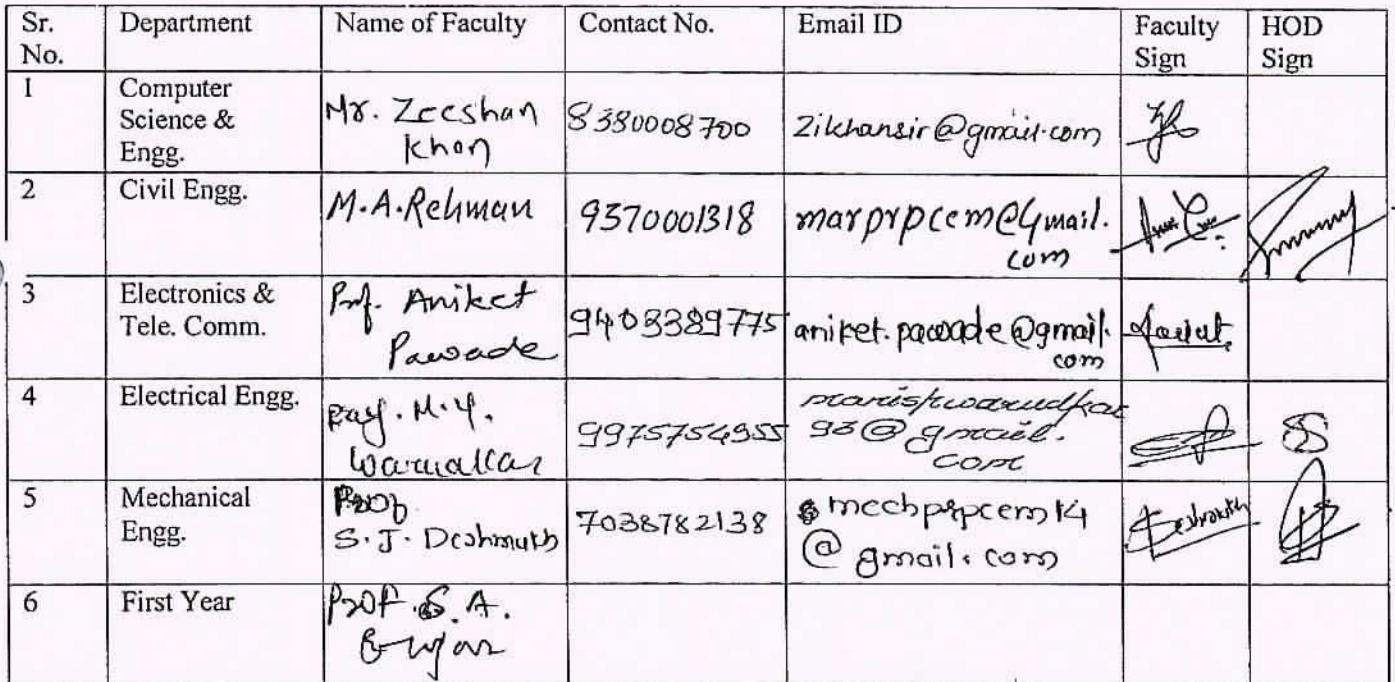 Sr. Department Name of Faculty Contact No. Email ID Faculty HOD
No. Sign Sign
1 Computer
Science &
Engg.
Mr. Zeeshan
Khan
8380008700
zikhansir@gmail.com
2 Civil Engg.
M.A.Rehman
9370001318
marprpcem@gmail.
com
3 Electronics &
Tele. Comm.
Prof. Aniket
Pawade
9403389775
aniket.pawade@gmail.
com
4 Electrical Engg.
M.Y.
9975754955
93@gmail.
com
5 Mechanical
Engg.
Prof
S.J. Deshmukh
7038782138
mechprpcem14
@gmail.com
6 First Year
Prof. S. A.